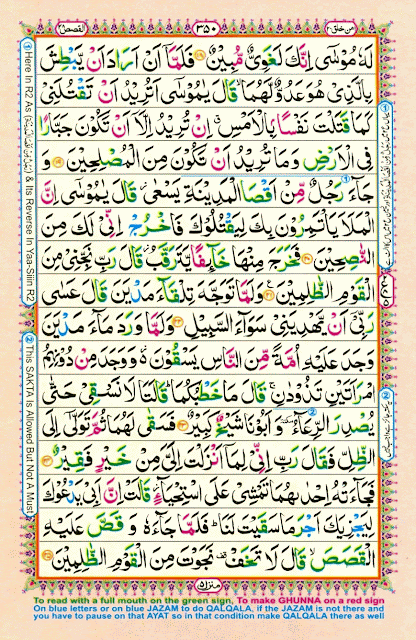 القصص ٢٨
٣٥٠
امن خلق ٢٠
لَهٗ مُوْسٰۤى اِنَّكَ لَغَوِىٌّ مُّبِيْنٌ ﴿۱۸﴾ فَلَمَّاۤ اَنْ اَرَادَ اَنْ يَّبْطِشَ
بِالَّذِىْ هُوَ عَدُوٌّ لَّهُمَا ۙ قَالَ يٰمُوْسٰۤى اَتُرِيْدُ اَنْ تَقْتُلَنِىْ
كَمَا قَتَلْتَ نَفْسًۢا بِالْاَمْسِ ۖ اِنْ تُرِيْدُ اِلَّاۤ اَنْ تَكُوْنَ جَبَّارًا
فِى الْاَرْضِ وَمَا تُرِيْدُ اَنْ تَكُوْنَ مِنَ الْمُصْلِحِيْنَ ﴿۱۹﴾ وَ
جَآءَ رَجُلٌ مِّنْ اَقْصَا الْمَدِيْنَةِ يَسْعٰى ۫ قَالَ يٰمُوْسٰۤى اِنَّ
الْمَلَاَ يَاْتَمِرُوْنَ بِكَ لِيَقْتُلُوْكَ فَاخْرُجْ اِنِّىْ لَكَ مِنَ
النّٰصِحِيْنَ ﴿۲۰﴾ فَخَرَجَ مِنْهَا خَآئِفًا يَّتَرَقَّبُ ۫ قَالَ رَبِّ نَجِّنِىْ مِنَ
الْقَوْمِ الظّٰلِمِيْنَ ﴿۲۱﴾ وَلَمَّا تَوَجَّهَ تِلْقَآءَ مَدْيَنَ قَالَ عَسٰى
رَبِّىْۤ اَنْ يَّهْدِيَنِىْ سَوَآءَ السَّبِيْلِ ﴿۲۲﴾ وَلَمَّا وَرَدَ مَآءَ مَدْيَنَ
وَجَدَ عَلَيْهِ اُمَّةً مِّنَ النَّاسِ يَسْقُوْنَ ۫ وَوَجَدَ مِنْ دُوْنِهِمُ
امْرَاَتَيْنِ تَذُوْدٰنِ ۚ قَالَ مَا خَطْبُكُمَا ؕ قَالَتَا لَا نَسْقِىْ حَتّٰى
يُصْدِرَ الرِّعَآءُ ٚ وَ اَبُوْنَا شَيْخٌ كَبِيْرٌ ﴿۲۳﴾ فَسَقٰى لَهُمَا ثُمَّ تَوَلّٰۤى اِلَى
الظِّلِّ فَقَالَ رَبِّ اِنِّىْ لِمَاۤ اَنْزَلْتَ اِلَىَّ مِنْ خَيْرٍ فَقِيْرٌ ﴿۲۴﴾
فَجَآءَتْهُ اِحْدٰىهُمَا تَمْشِىْ عَلَى اسْتِحْيَآءٍ ۫ قَالَتْ اِنَّ اَبِىْ يَدْعُوْكَ
لِيَجْزِيَكَ اَجْرَ مَا سَقَيْتَ لَنَا ؕ فَلَمَّا جَآءَهٗ وَ قَصَّ عَلَيْهِ
الْقَصَصَ ۙ قَالَ لَا تَخَفْ ۥ نَجَوْتَ مِنَ الْقَوْمِ الظّٰلِمِيْنَ ﴿۲۵﴾
منزل ٥
① Here In R2 As
& Its Reverse In Yaa-Siiin R2
② This SAKTA Is Allowed But Not A Must
To read with a full mouth on the green sign, To make GHUNNA on a red sign
On blue letters or on blue JAZAM to do QALQALA, if the JAZAM is not there and
you have to pause on that AYAT so in that condition make QALQALA there as well